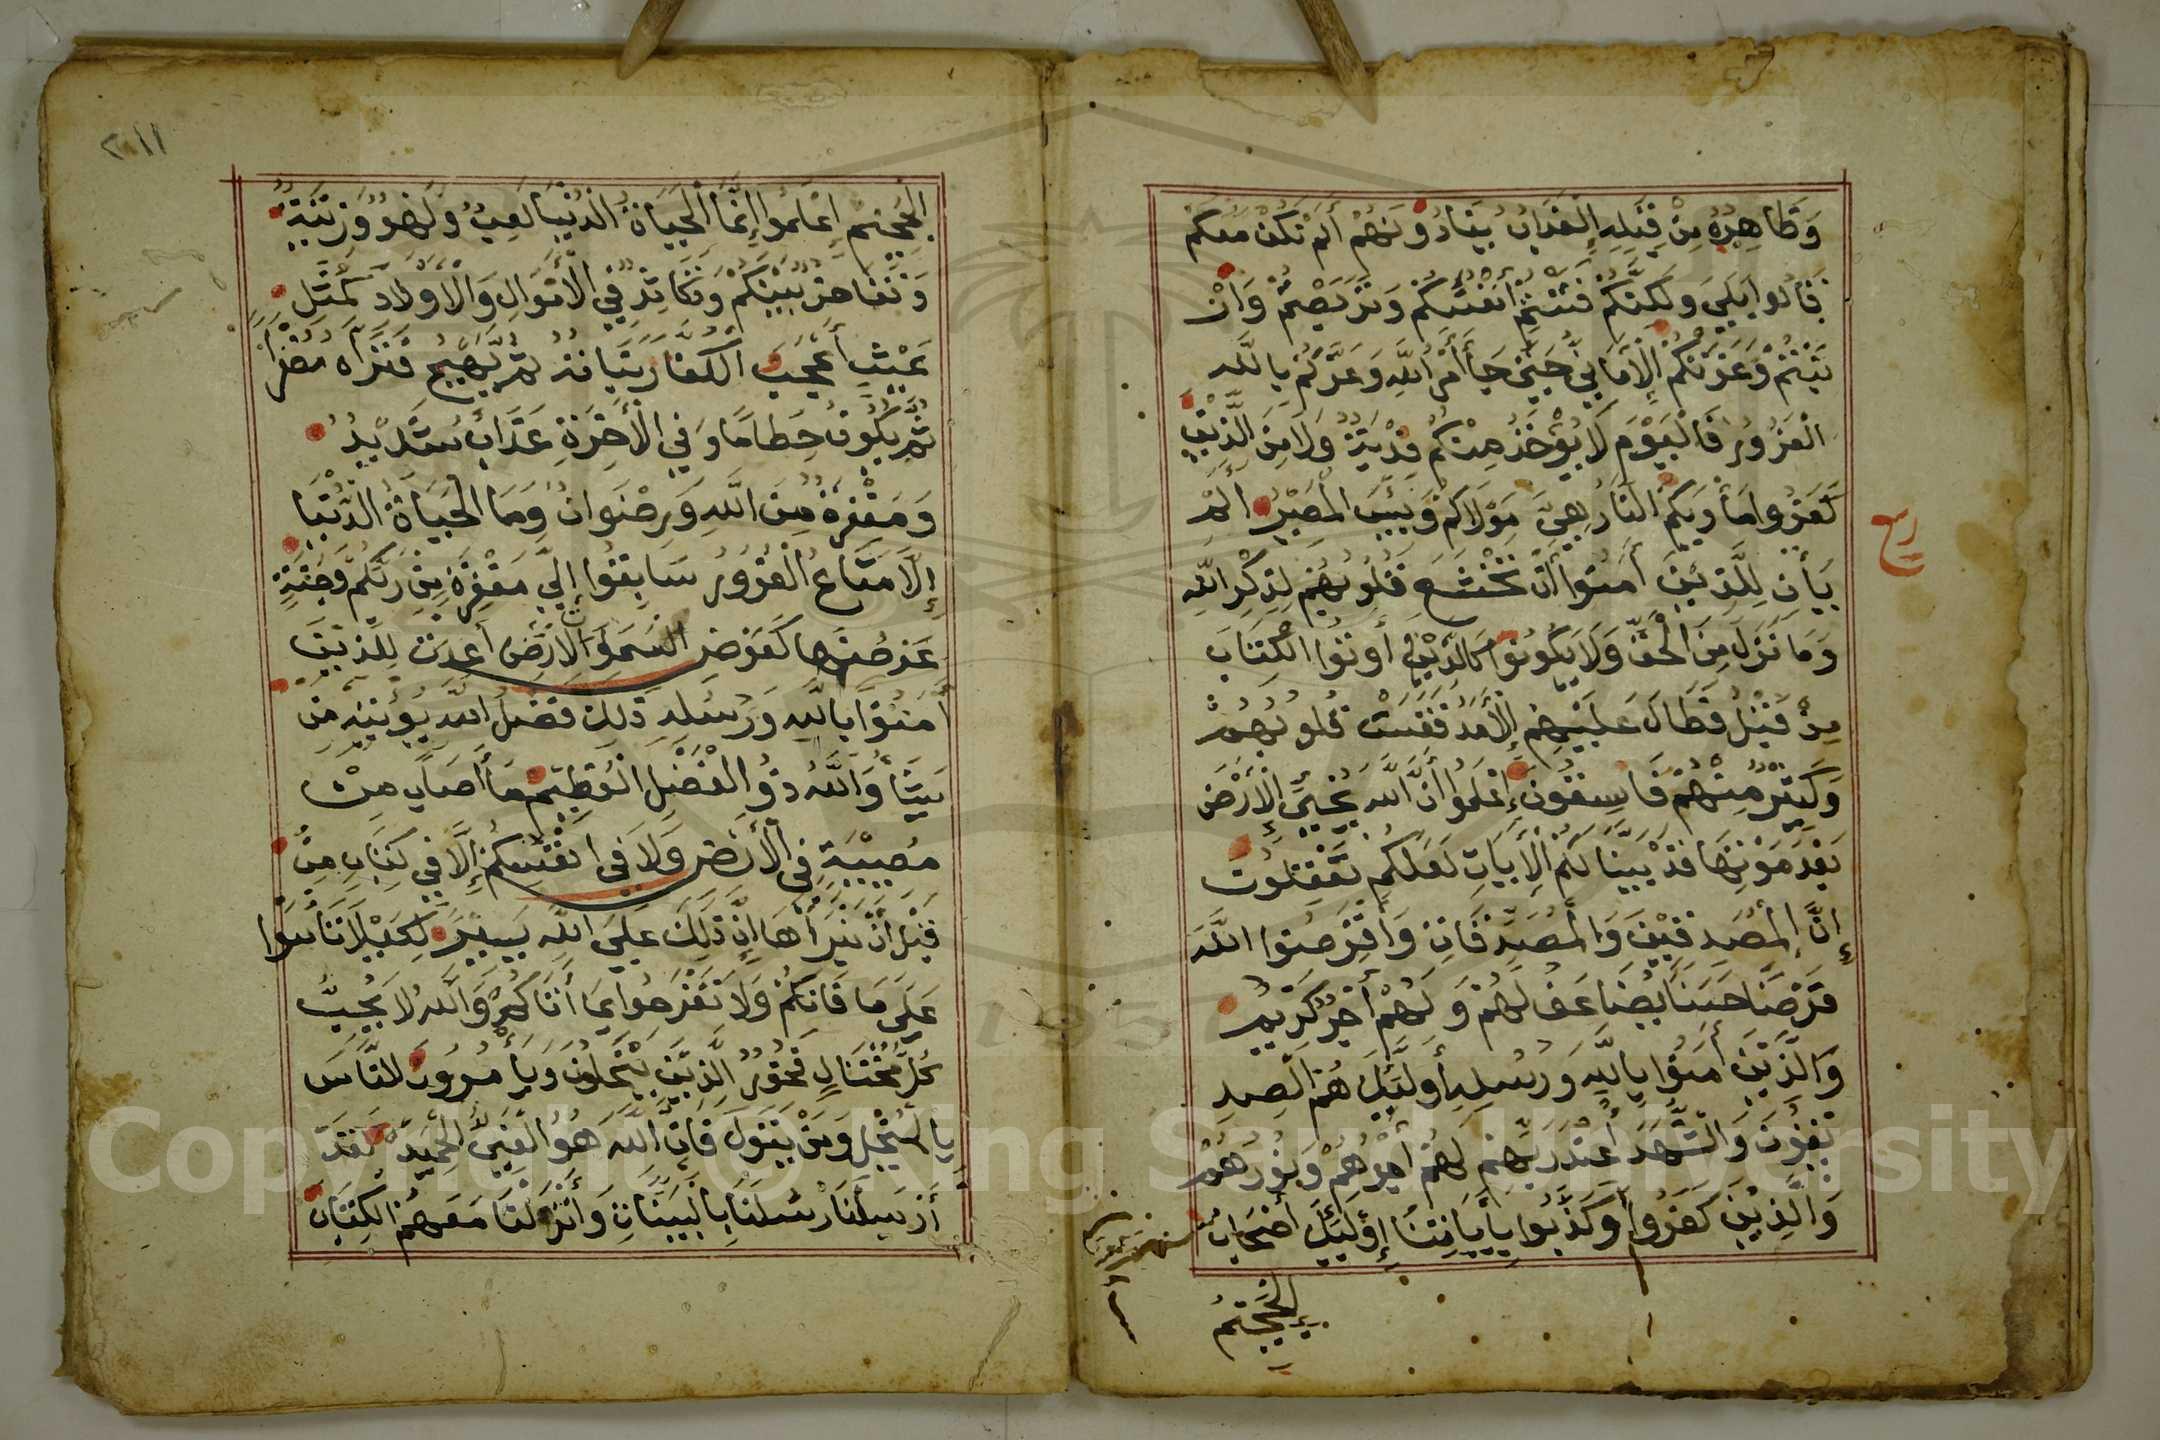 وَظَاهِرُهُ مِنْ قِبَلِهِ الْعَذَابُ يُنَادُونَهُمْ أَلَمْ نَكُنْ مَعَكُمْ
قَالُوا بَلَى وَلَكِنَّكُمْ فَتَنْتُمْ أَنْفُسَكُمْ وَتَرَبَّصْتُمْ وَارْ
تَبْتُمْ وَغَرَّتْكُمُ الْأَمَانِيُّ حَتَّى جَاءَ أَمْرُ اللَّهِ وَغَرَّكُمْ بِاللَّهِ
الْغَرُورُ فَالْيَوْمَ لَا يُؤْخَذُ مِنْكُمْ فِدْيَةٌ وَلَا مِنَ الَّذِينَ
كَفَرُوا مَأْوَيكُمُ النَّارُ هِيَ مَوْلَاكُمْ وَبِئْسَ الْمَصِيرُ أَلَمْ
يَأْنِ لِلَّذِينَ آمَنُوا أَنْ تَخْشَعَ قُلُوبُهُمْ لِذِكْرِ اللَّهِ
وَمَا نَزَلَ مِنَ الْحَقِّ وَلَا يَكُونُوا كَالَّذِينَ أُوتُوا الْكِتَابَ
مِنْ قَبْلُ فَطَالَ عَلَيْهِمُ الْأَمَدُ فَقَسَتْ قُلُوبُهُمْ
وَكَثِيرٌ مِنْهُمْ فَاسِقُونَ إِعْلَمُوا أَنَّ اللَّهَ يُحْيِي الْأَرْضَ
بَعْدَ مَوْتِهَا قَدْ بَيَّنَّا لَكُمُ الْآيَاتِ لَعَلَّكُمْ تَعْقِلُونَ
إِنَّ الْمُصَّدِّقِينَ وَالْمُصَّدِّقَاتِ وَأَقْرَضُوا اللَّهَ
قَرْضًا حَسَنًا يُضَاعَفُ لَهُمْ وَلَهُمْ أَجْرٌ كَرِيمٌ
وَالَّذِينَ آمَنُوا بِاللَّهِ وَرُسُلِهِ أُولَئِكَ هُمُ الصِّدِّ
يقُونَ وَالشُّهَدَاءُ عِنْدَ رَبِّهِمْ لَهُمْ أَجْرُهُمْ وَنُورُهُمْ
وَالَّذِينَ كَفَرُوا وَكَذَّبُوا بِآيَاتِنَا أُولَئِكَ أَصْحَابُ
الْجَحِيمِ
ربع
٢١١
الْجَحِيمِ إِعْلَمُوا إِنَّمَا الْحَيَاةُ الدُّنْيَا لَعِبٌ وَلَهْوٌ وَزِينَةٌ
وَتَفَاخُرٌ بَيْنَكُمْ وَتَكَاثُرٌ فِي الْأَمْوَالِ وَالْأَوْلَادِ كَمَثَلِ
غَيْثٍ أَعْجَبَ الْكُفَّارَ نَبَاتُهُ ثُمَّ يَهِيجُ فَتَرَاهُ مُصْفَرًّا
ثُمَّ يَكُونُ حُطَامًا وَفِي الْآخِرَةِ عَذَابٌ شَدِيدٌ
وَمَغْفِرَةٌ مِنَ اللَّهِ وَرِضْوَانٌ وَمَا الْحَيَاةُ الدُّنْيَا
إِلَّا مَتَاعُ الْغُرُورِ سَابِقُوا إِلَى مَغْفِرَةٍ مِنْ رَبِّكُمْ وَجَنَّةٍ
عَرْضُهَا كَعَرْضِ السَّمَاءِ وَالْأَرْضِ أُعِدَّتْ لِلَّذِينَ
آمَنُوا بِاللَّهِ وَرُسُلِهِ ذَلِكَ فَضْلُ اللَّهِ يُؤْتِيهِ مَنْ
يَشَاءُ وَاللَّهُ ذُو الْفَضْلِ الْعَظِيمِ مَا أَصَابَ مِنْ
مُصِيبَةٍ فِي الْأَرْضِ وَلَا فِي أَنْفُسِكُمْ إِلَّا فِي كِتَابٍ مِنْ
قَبْلِ أَنْ نَبْرَأَهَا إِنَّ ذَلِكَ عَلَى اللَّهِ يَسِيرٌ لِكَيْلَا تَأْسَوْا
عَلَى مَا فَاتَكُمْ وَلَا تَفْرَحُوا بِمَا أَتَاكُمْ وَاللَّهُ لَا يُحِبُّ
كُلَّ مُخْتَالٍ فَخُورٍ الَّذِينَ يَبْخَلُونَ وَيَأْمُرُونَ النَّاسَ
بِالْبُخْلِ وَمَنْ يَتَوَلَّ فَإِنَّ اللَّهَ هُوَ الْغَنِيُّ الْحَمِيدُ لَقَدْ
أَرْسَلْنَا رُسُلَنَا بِالْبَيِّنَاتِ وَأَنْزَلْنَا مَعَهُمُ الْكِتَابَ
Copyright © King Saud University
1957